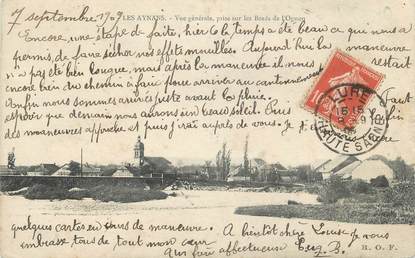 7 septembre 1909 LES AYNANS. — Vue générale, prise sur les Bords de l'Ognon
Encore une étape de faite, hier 6 le temps a été beau ce que nous a
permis, de faire sécher nos effets mouillés. Aujourd'hui la manœuvre
n'a pas été bien longue, mais après la manœuvre il nous
encore bien du chemin à faire pour arriver au cantonnement
Enfin nous sommes arrivés juste avant la pluie.
espérer que demain nous aurons un beau soleil. Puis
des manœuvres approche et puis j'irai auprès de vous. Je t'
LURE
HAUTE SAÔNE
quelques cartes en sus de manœuvre. A bientôt chère Louise je vous
embrasse tous de tout mon cœur
Eug. B.
B. O. F.